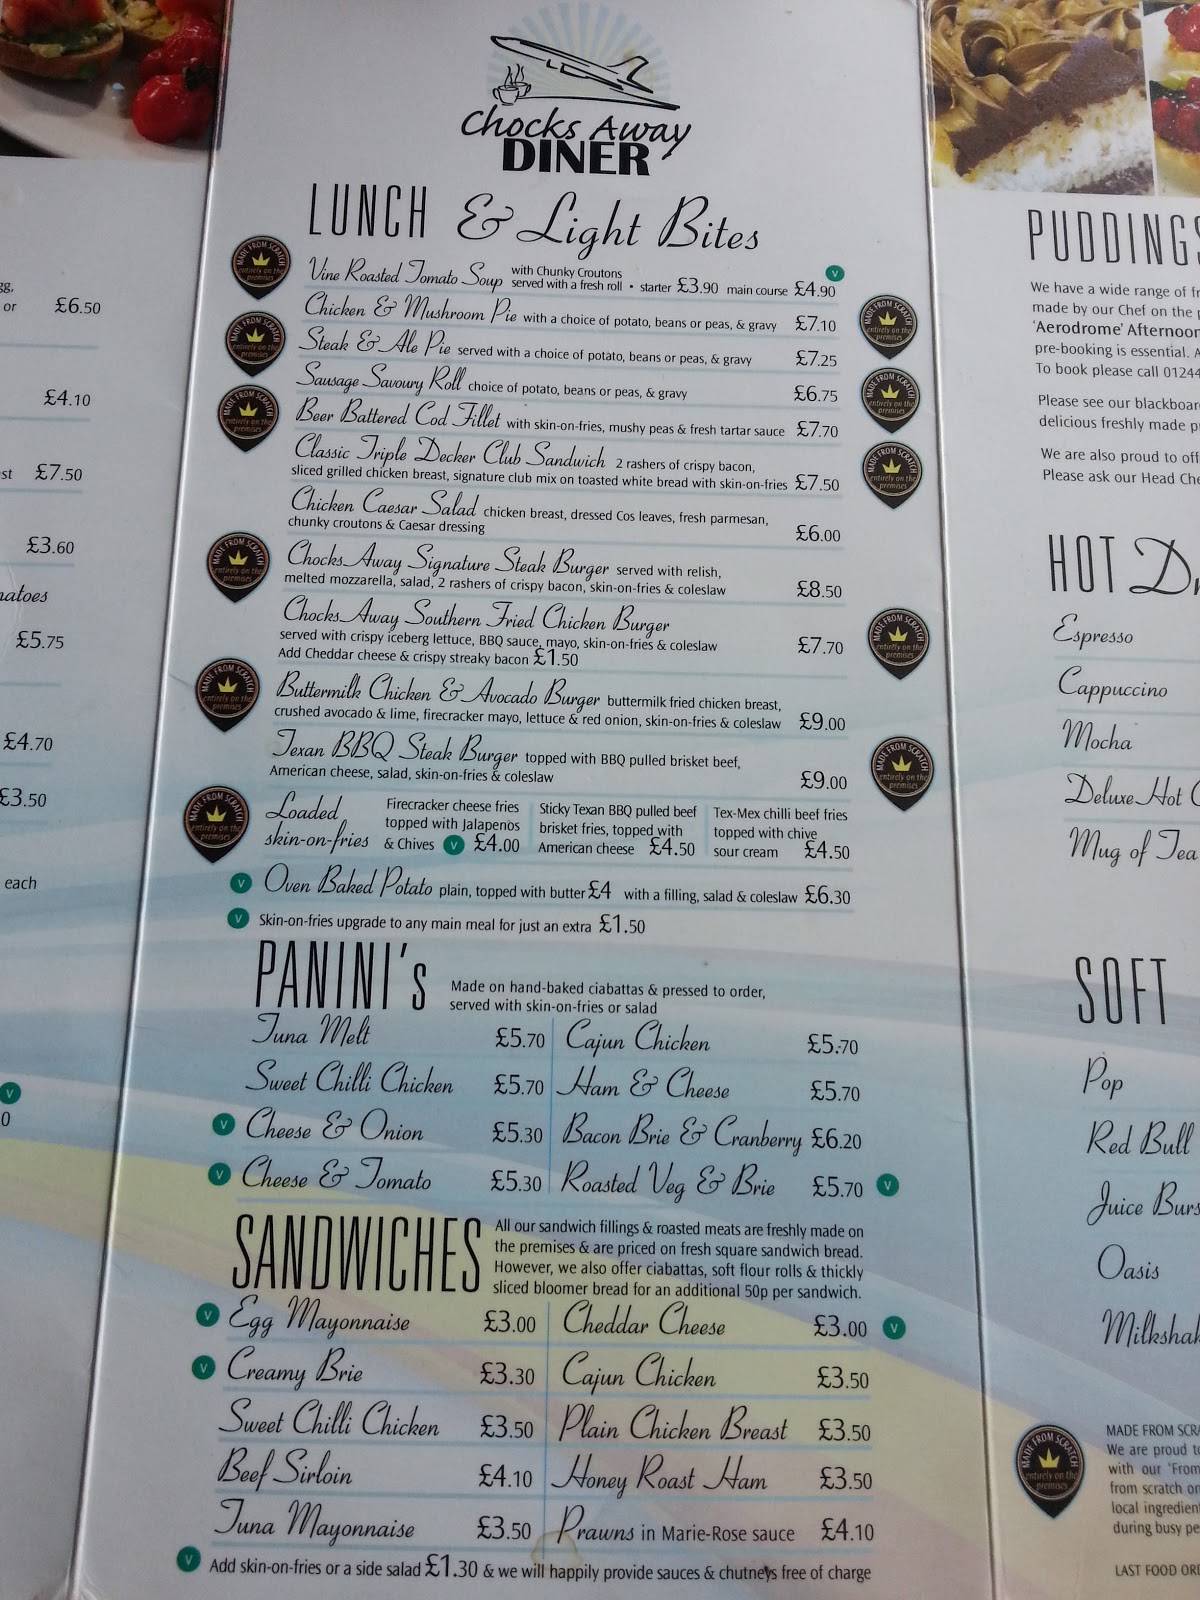 Chocks Away
DINER
LUNCH & Light Bites
Vine Roasted Tomato Soup with Chunky Croutons
served with a fresh roll • starter £3.90 main course £4.90
V
Chicken & Mushroom Pie with a choice of potato, beans or peas, & gravy £7.10
Steak & Ale Pie served with a choice of potato, beans or peas, & gravy £7.25
Sausage Savoury Roll choice of potato, beans or peas, & gravy £6.75
Beer Battered Cod Fillet with skin-on-fries, mushy peas & fresh tartar sauce £7.70
Classic Triple Decker Club Sandwich 2 rashers of crispy bacon,
sliced grilled chicken breast, signature club mix on toasted white bread with skin-on-fries £7.50
Chicken Caesar Salad chicken breast, dressed Cos leaves, fresh parmesan,
chunky croutons & Caesar dressing £6.00
Chocks Away Signature Steak Burger served with relish,
melted mozzarella, salad, 2 rashers of crispy bacon, skin-on-fries & coleslaw £8.50
Chocks Away Southern Fried Chicken Burger
served with crispy iceberg lettuce, BBQ sauce, mayo, skin-on-fries & coleslaw £7.70
Add Cheddar cheese & crispy streaky bacon £1.50
Buttermilk Chicken & Avocado Burger buttermilk fried chicken breast,
crushed avocado & lime, firecracker mayo, lettuce & red onion, skin-on-fries & coleslaw £9.00
Texan BBQ Steak Burger topped with BBQ pulled brisket beef,
American cheese, salad, skin-on-fries & coleslaw £9.00
Loaded
skin-on-fries
Firecracker cheese fries
topped with Jalapenos
& Chives V £4.00
Sticky Texan BBQ pulled beef
brisket fries, topped with
American cheese £4.50
Tex-Mex chilli beef fries
topped with chive
sour cream £4.50
V Oven Baked Potato plain, topped with butter £4 with a filling, salad & coleslaw £6.30
V Skin-on-fries upgrade to any main meal for just an extra £1.50
PANINI's
Made on hand-baked ciabattas & pressed to order,
served with skin-on-fries or salad
Tuna Melt £5.70 Cajun Chicken £5.70
Sweet Chilli Chicken £5.70 Ham & Cheese £5.70
V Cheese & Onion £5.30 Bacon Brie & Cranberry £6.20
V Cheese & Tomato £5.30 Roasted Veg & Brie £5.70 V
SANDWICHES
All our sandwich fillings & roasted meats are freshly made on
the premises & are priced on fresh square sandwich bread.
However, we also offer ciabattas, soft flour rolls & thickly
sliced bloomer bread for an additional 50p per sandwich.
V Egg Mayonnaise £3.00 Cheddar Cheese £3.00 V
V Creamy Brie £3.30 Cajun Chicken £3.50
Sweet Chilli Chicken £3.50 Plain Chicken Breast £3.50
Beef Sirloin £4.10 Honey Roast Ham £3.50
Tuna Mayonnaise £3.50 Prawns in Marie-Rose sauce £4.10
V Add skin-on-fries or a side salad £1.30 & we will happily provide sauces & chutneys free of charge
MADE FROM SCRATCH
entirely on the
premises
or £6.50
£4.10
£7.50
£3.60
£5.75
£4.70
£3.50
each
V
PUDDINGS
We have a wide range of
made by our Chef on the
'Aerodrome' Afternoon
pre-booking is essential.
To book please call 01244
Please see our blackboard
delicious freshly made
We are also proud to
Please ask our Head
HOT
Espresso
Cappuccino
Mocha
Deluxe Hot
Mug of Tea
SOFT
Pop
Red Bull
Juice
Oasis
MADE FROM
We are proud
with our 'From
from scratch
local
during busy
LAST FOOD